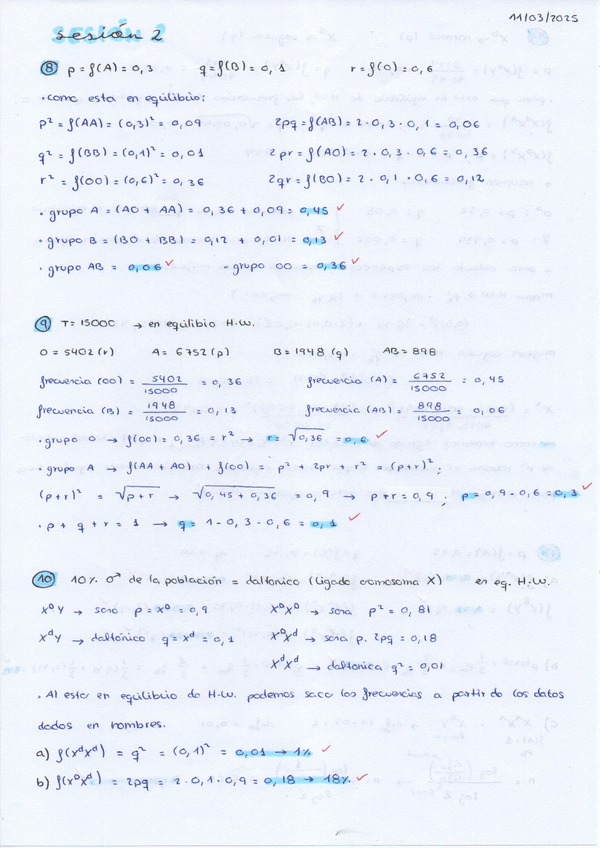 11/03/2025
SESIÓN 2
sesión 2
8 p = f(A) = 0,3 q = f(B) = 0,1 r = f(O) = 0,6
· como esta en eqilibio:
p² = f(AA) = (0,3)² = 0,09 2pq = f(AB) = 2 · 0,3 · 0,1 = 0,06
q² = f(BB) = (0,1)² = 0,01 2pr = f(AO) = 2 · 0,3 · 0,6 = 0,36
r² = f(OO) = (0,6)² = 0,36 2qr = f(BO) = 2 · 0,1 · 0,6 = 0,12
· grupo A = (AO + AA) = 0,36 + 0,09 = 0,45 ✓
· grupo B = (BO + BB) = 0,12 + 0,01 = 0,13 ✓
· grupo AB = 0,06 ✓ - grupo OO = 0,36 ✓
9 T = 15000 → en eqilibio H.W.
O = 5402 (r) A = 6752 (p) B = 1948 (q) AB = 898
frecuencia (OO) = 5402/15000 = 0,36 frecuencia (A) = 6752/15000 = 0,45
frecuencia (B) = 1948/15000 = 0,13 frecuencia (AB) = 898/15000 = 0,06
· grupo O → f(OO) = 0,36 = r² → r = √0,36 = 0,6 ✓
· grupo A → f(AA + AO) + f(OO) = p² + 2pr + r² = (p+r)²;
(p+r)² = √p+r → √0,45 + 0,36 = 0,9 → p+r = 0,9; p = 0,9 - 0,6 = 0,3 ✓
· p + q + r = 1 → q = 1 - 0,3 - 0,6 = 0,1 ✓
10 10% ♂ de la población = daltonico (ligado cromosoma X) en eq. H.W.
X^D Y → sera p = X^D = 0,9 X^D X^D → sera p² = 0,81
X^d Y → daltónico q = X^d = 0,1 X^D X^d → sera p. 2pq = 0,18
X^d X^d → daltónica q² = 0,01
· Al esta en eqilibio de H.W. podemos saca las frecuencias a partir de los datos
dados en hombres.
a) f(X^d X^d) = q² = (0,1)² = 0,01 → 1% ✓
b) f(X^D X^d) = 2pq = 2 · 0,1 · 0,9 = 0,18 → 18% ✓